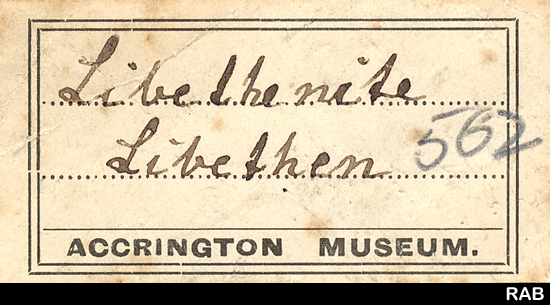 Libethenite
Libethen 562
ACCRINGTON MUSEUM.
RAB